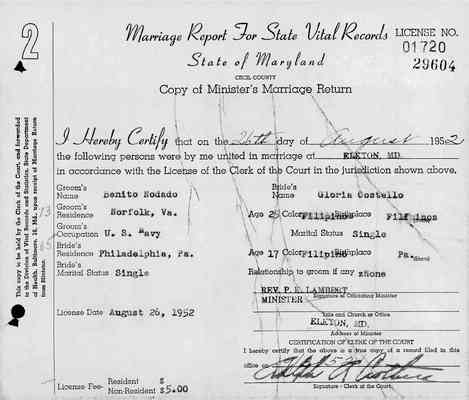 2
Marriage Report For State Vital Records
LICENSE NO.
01720
29604
State of Maryland
CECIL COUNTY
Copy of Minister's Marriage Return
I Hereby Certify that on the 26th day of August 1952
the following persons were by me united in marriage at ELKTON, MD.
in accordance with the License of the Clerk of the Court in the jurisdiction shown above.
Groom's Name Benito Nodado Bride's Name Gloria Costello
Groom's Residence Norfolk, Va. Age 25 Color Filipino Birthplace
Groom's Occupation U. S. Navy Marital Status Single
Bride's Residence Philadelphia, Pa. Age 17 Color Filipino Birthplace Pa.
Bride's Marital Status Single Relationship to groom if any none
REV. P. E. LAMBERT
MINISTER Signature of Officiating Minister
License Date August 26, 1952
Title and Church or Office
ELKTON, MD.
Address of Minister
CERTIFICATION OF CLERK OF THE COURT
I hereby certify that the above is a true copy of a record filed in this
office on
License Fee- Resident $
Non-Resident $5.00
Signature - Clerk of the Court.
This copy to be held by the Clerk of the Court, and forwarded
to the Division of Vital Records and Statistics, State Department
of Health, Baltimore, 18, Md. upon receipt of Marriage Return
from Minister.